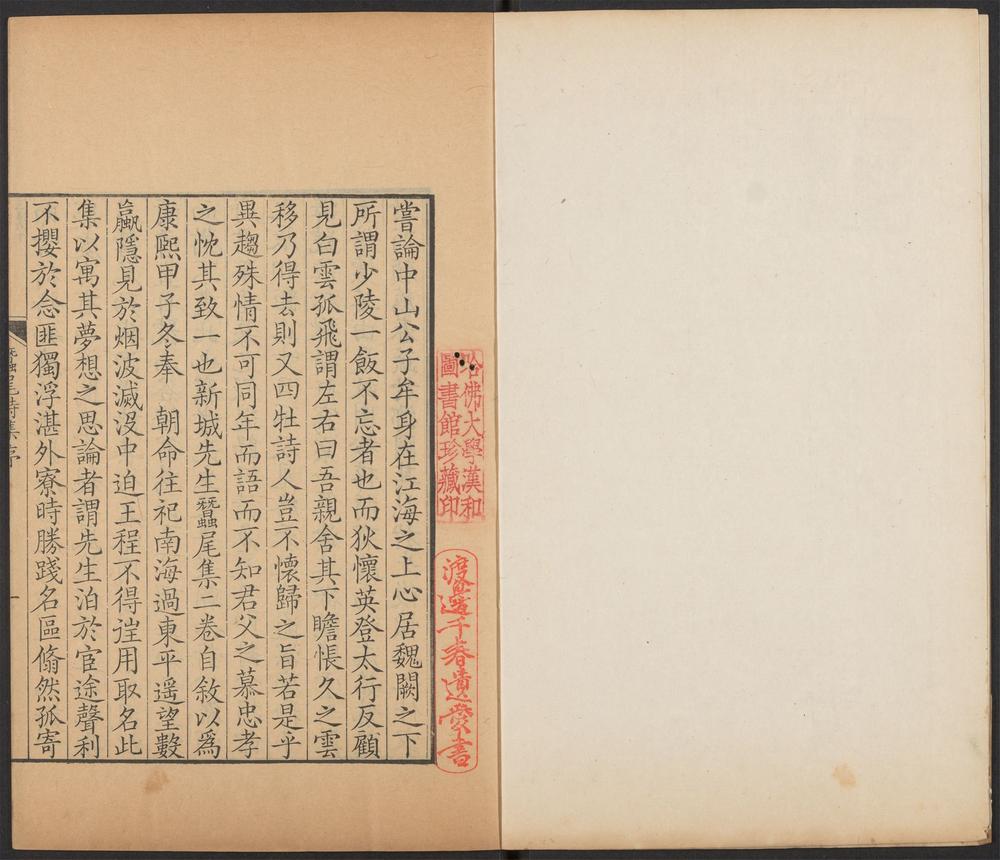 嘗論中山公子牟身在江海之上心居魏闕之下
所謂少陵一飯不忘者也而狄懷英登太行反顧
見白雲孤飛謂左右曰吾親舍其下瞻悵久之雲
移乃得去則又四牡詩人豈不懷歸之旨若是乎
異趨殊情不可同年而語而不知君父之慕忠孝
之忱其致一也新城先生蠶尾集二卷自敘以爲
康熙甲子冬奉　朝命往祀南海過東平遥望數
贏隱見於烟波滅沒中迫王程不得徃用取名此
集以寓其夢想之思論者謂先生泊於宦途聲利
不攖於念匪獨浮湛外寮時勝踐名區翛然孤寄
蠶尾詩集序
一
哈佛大學漢和
圖書館珍藏印
渡邊千春遺愛書